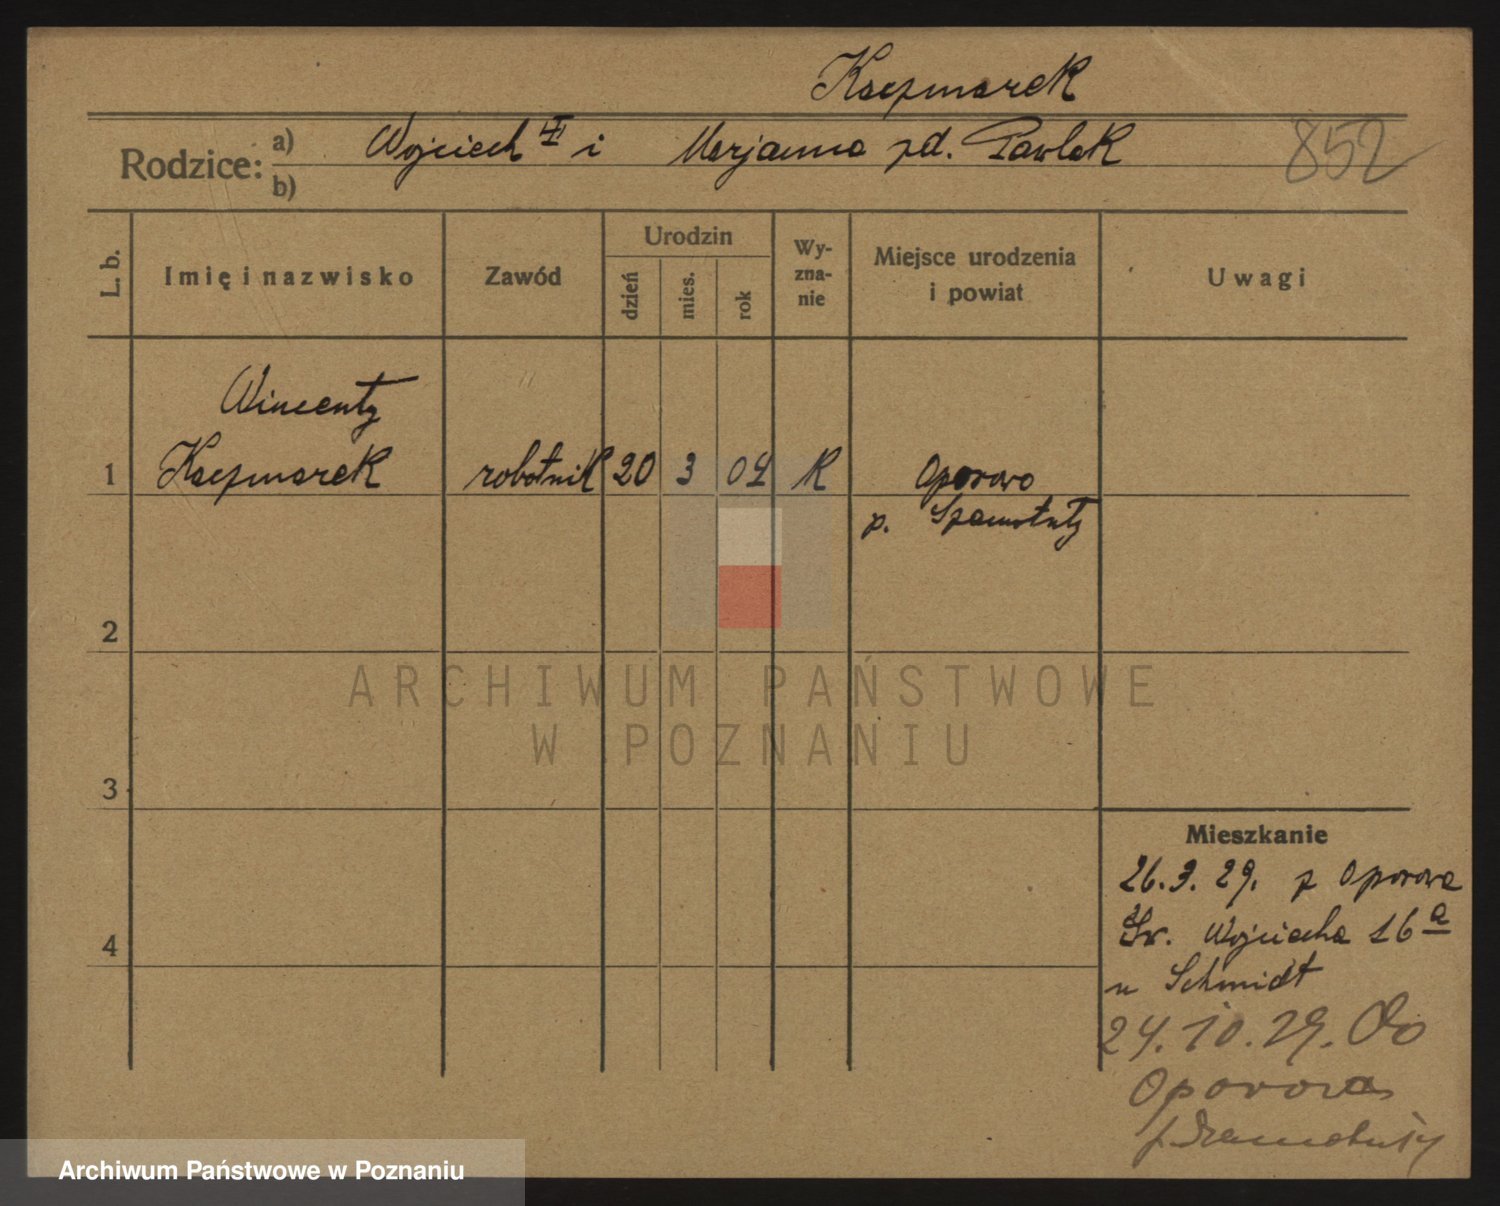 Kaczmarek
Rodzice: a) Wojciech i Marjanna zd. Pawlak
b)
852
L. b. Imię i nazwisko Zawód Urodzin dzień mies. rok Wy-zna-nie Miejsce urodzenia i powiat Uwagi
Wincenty
1 Kaczmarek robotnik 20 3 04 K Oporowo
p. Szamotuły
2
ARCHIWUM PAŃSTWOWE
W POZNANIU
3
Mieszkanie
26.3.29. z Oporowa
Św. Wojciecha 16a
4
u Schmidt
24.10.29. Do
Oporowa
p. Szamotuły
Archiwum Państwowe w Poznaniu